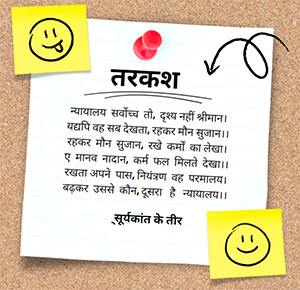 तरकश
न्यायालय सर्वोच्च तो, दृश्य नहीं श्रीमान।
यद्यपि वह सब देखता, रहकर मौन सुजान।।
रहकर मौन सुजान, रखे कर्मों का लेखा।
ए मानव नादान, कर्म फल मिलते देखा।।
रखता अपने पास, नियंत्रण वह परमालय।
बढ़कर उससे कौन, दूसरा है न्यायालय।।
सूर्यकांत के तीर